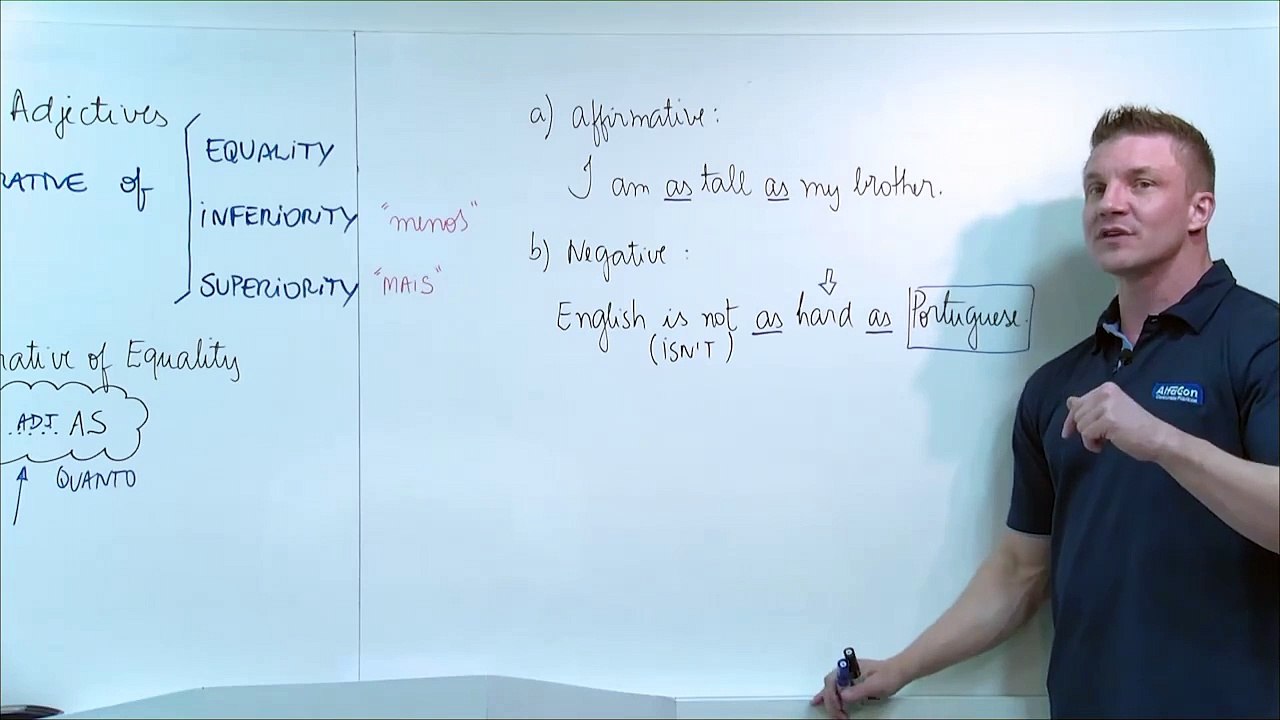 Adjectives
RATIVE of
EQUALITY
INFERIORITY "menos"
SUPERIORITY "MAIS"
rative of Equality
ADJ. AS
QUANTO
a) affirmative:
I am as tall as my brother.
b) Negative:
English is not as hard as Portuguese.
(ISN'T)
AlfaCon
Concursos Públicos